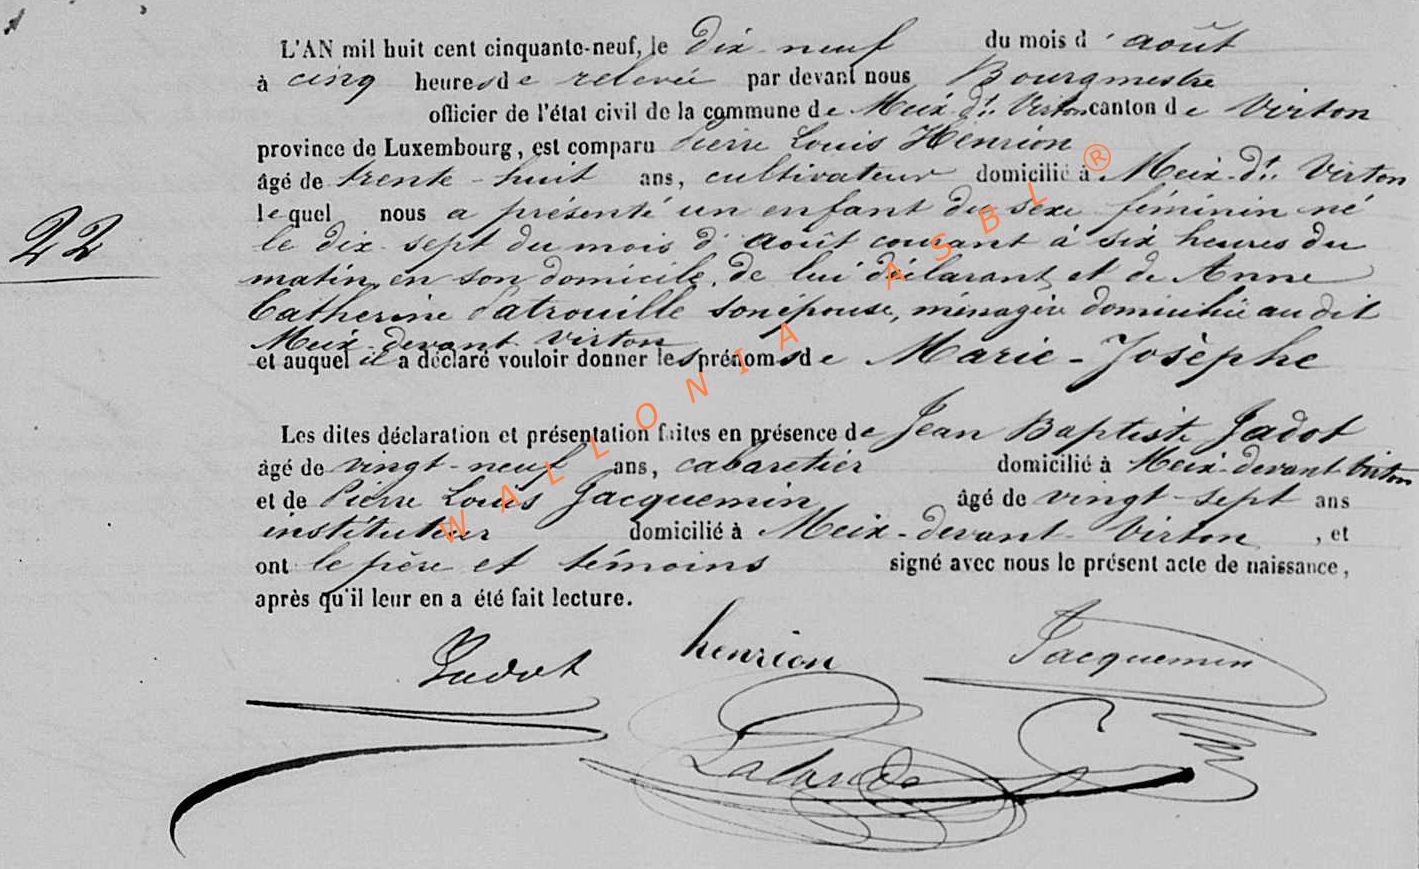 L'AN mil huit cent cinquante-neuf, le dix-neuf du mois d'août
à cinq heures de relevée par devant nous Bourgmestre
officier de l'état civil de la commune de Meix-dt. Virton canton de Virton
province de Luxembourg, est comparu Pierre Louis Henrion
âgé de trente-huit ans, cultivateur domicilié à Meix-dt. Virton
lequel nous a présenté un enfant du sexe féminin né
22
le dix-sept du mois d'août courant à six heures du
matin, en son domicile, de lui déclarant et de Anne
Catherine Patrouille son épouse, ménagère domiciliée au dit
Meix-devant-Virton
et auquel il a déclaré vouloir donner les prénoms de Marie-Josèphe
Les dites déclaration et présentation faites en présence de Jean Baptiste Jadot
âgé de vingt-neuf ans, cabaretier domicilié à Meix-devant-Virton
et de Pierre Louis Jacquemin âgé de vingt-sept ans
instituteur domicilié à Meix-devant-Virton, et
ont le père et témoins signé avec nous le présent acte de naissance,
après qu'il leur en a été fait lecture.
Jadot henrion Jacquemin
WALLONIA ASBL ®